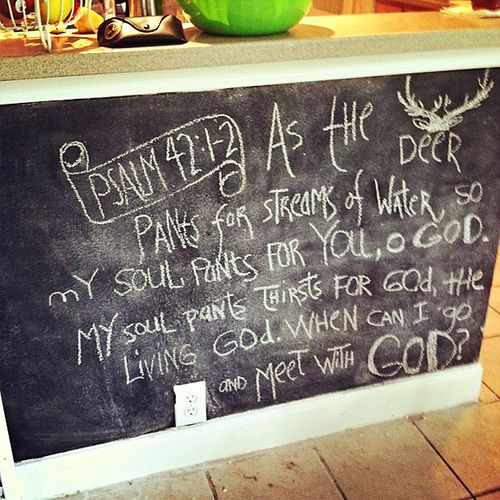 PSALM 42:1-2
As the DEER
PANts for STReAMS of WATeR, SO
mY SOUL PaNtS FOR YOU, O GOD.
MY SOUL paNtS THIRSTS FOR GOd, tHe
LIVING GOd. WHEN CAN I go
AND Meet WITH GOD?